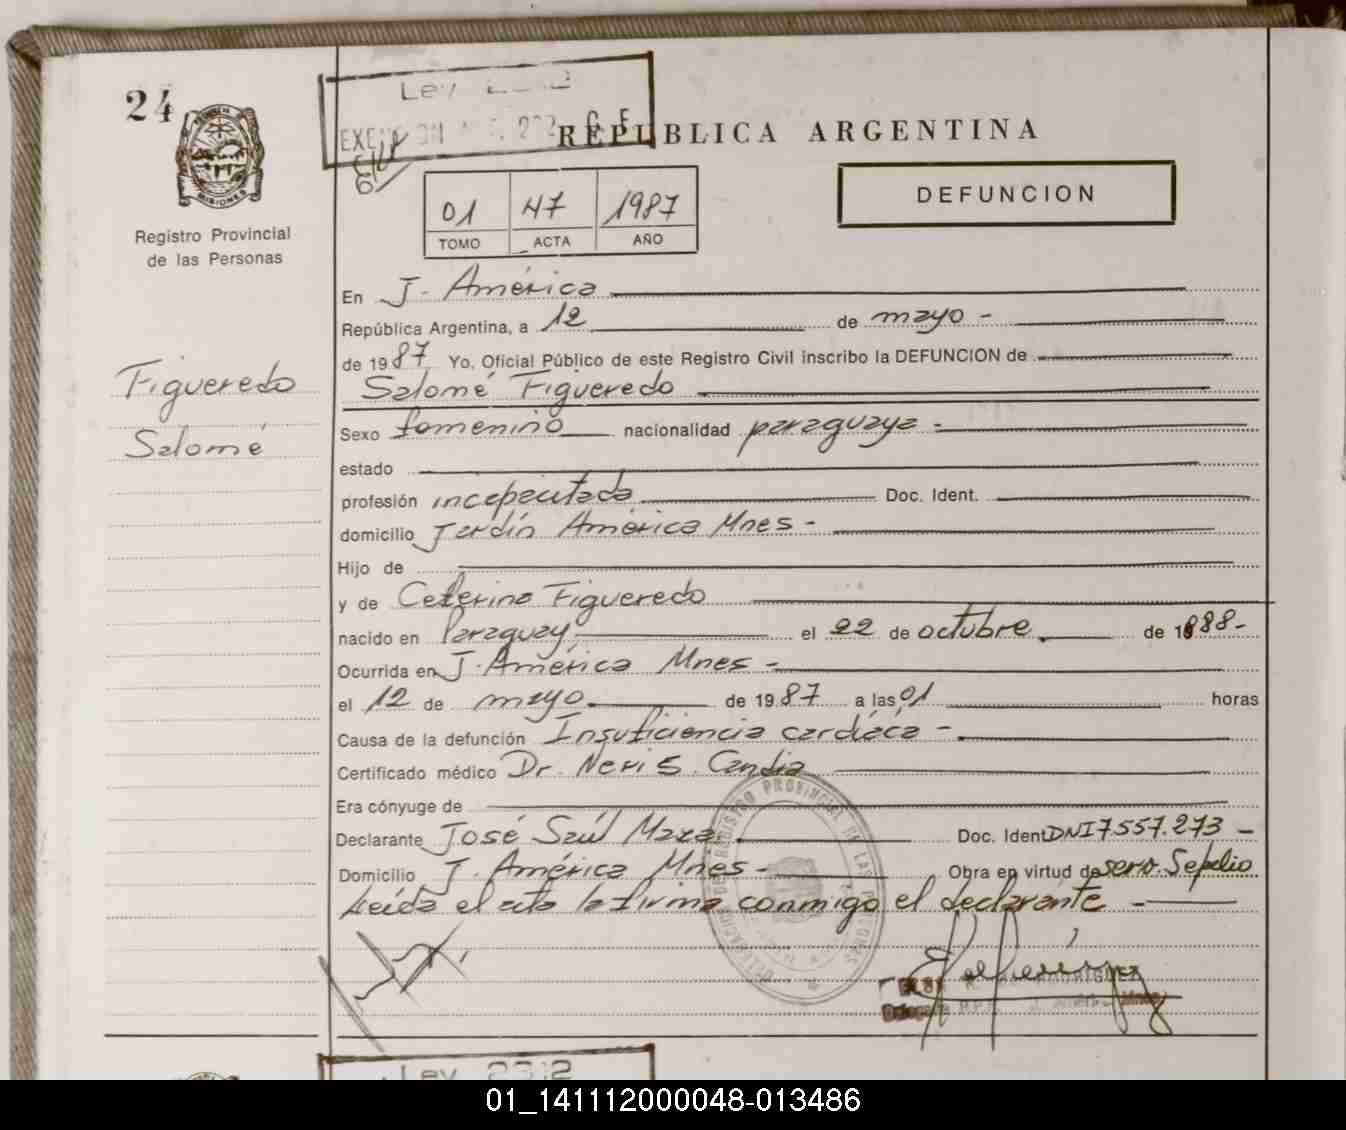 24
Ley
REPUBLICA ARGENTINA
PROVINCIA DE
MISIONES
Registro Provincial
de las Personas
01 47 1987
TOMO ACTA AÑO
DEFUNCION
En J. América
República Argentina, a 12 de mayo -
de 1987 Yo, Oficial Público de este Registro Civil inscribo la DEFUNCION de
Figueredo
Salomé
Salomé Figueredo
Sexo femenino nacionalidad paraguaya -
estado
profesión incapacitada Doc. Ident.
domicilio Jardín América Mnes -
Hijo de
y de Ceferina Figueredo
nacido en Paraguay, el 22 de octubre de 1888-
Ocurrida en J. América Mnes -
el 12 de mayo de 1987 a las 01 horas
Causa de la defunción Insuficiencia cardíaca -
Certificado médico Dr. Neri S. Candia
Era cónyuge de
Declarante José Saúl Maxa Doc. Ident DNI 7.557.273 -
Domicilio J. América Mnes - Obra en virtud de serv. Sepelio
Leída el acta la firma conmigo el declarante -
REGISTRO PROVINCIAL DE LAS PERSONAS
Ley 2312
01_141112000048-013486